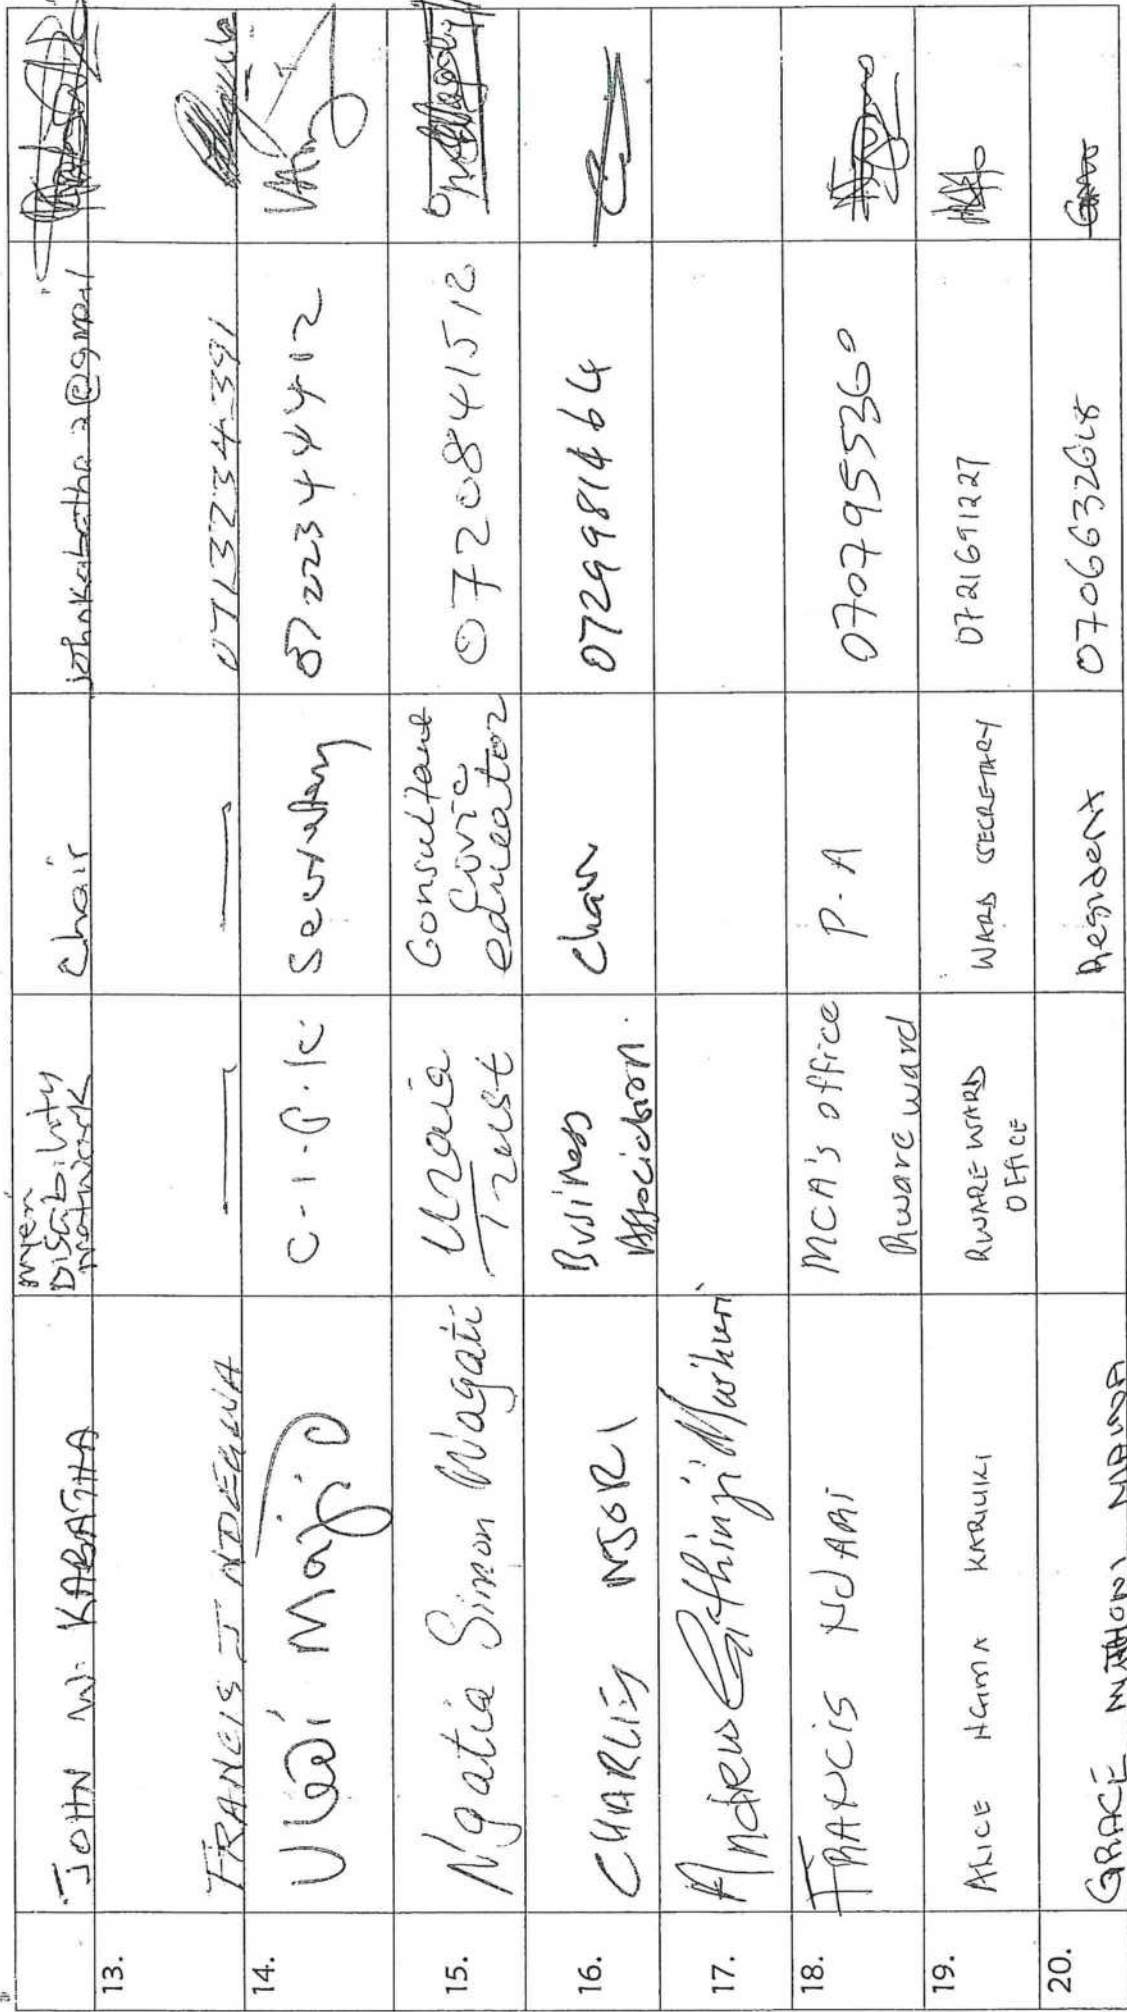 JOHN W. KABATHA
Nyeri
Disability
Network
Chair
johnkabatha2@gmail
13.
FRANCIS J NDEGWA
—
—
0713234391
14.
Uledi Majid
C-I-P-K
Secretary
0722344412
15.
Ngatia Simon Wagati
Uraia
Trust
Consultant
Civic
educator
0720841512
16.
CHARLIS NJORI
Business
Association.
Chair
0729981464
17.
Andrew Githinji Muihuri
18.
FRANCIS NDARI
MCA's office
Rware ward
P.A
0707955360
19.
ALICE NGIMA KARIUKI
RWARE WARD
OFFICE
WARD SECRETARY
0721691227
20.
GRACE MUTHONI
Resident